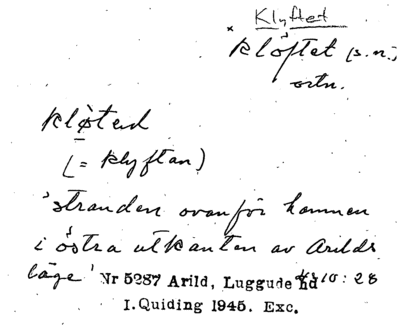 Klyftet
* Klöftet (s.n.)
ortn.
kløtend
(= klyftan)
'stranden ovanför hamnen
i östra utkanten av Arilds
läge' Nr 5287 Arild, Luggude hd 10:28
I.Quiding 1945. Exc.